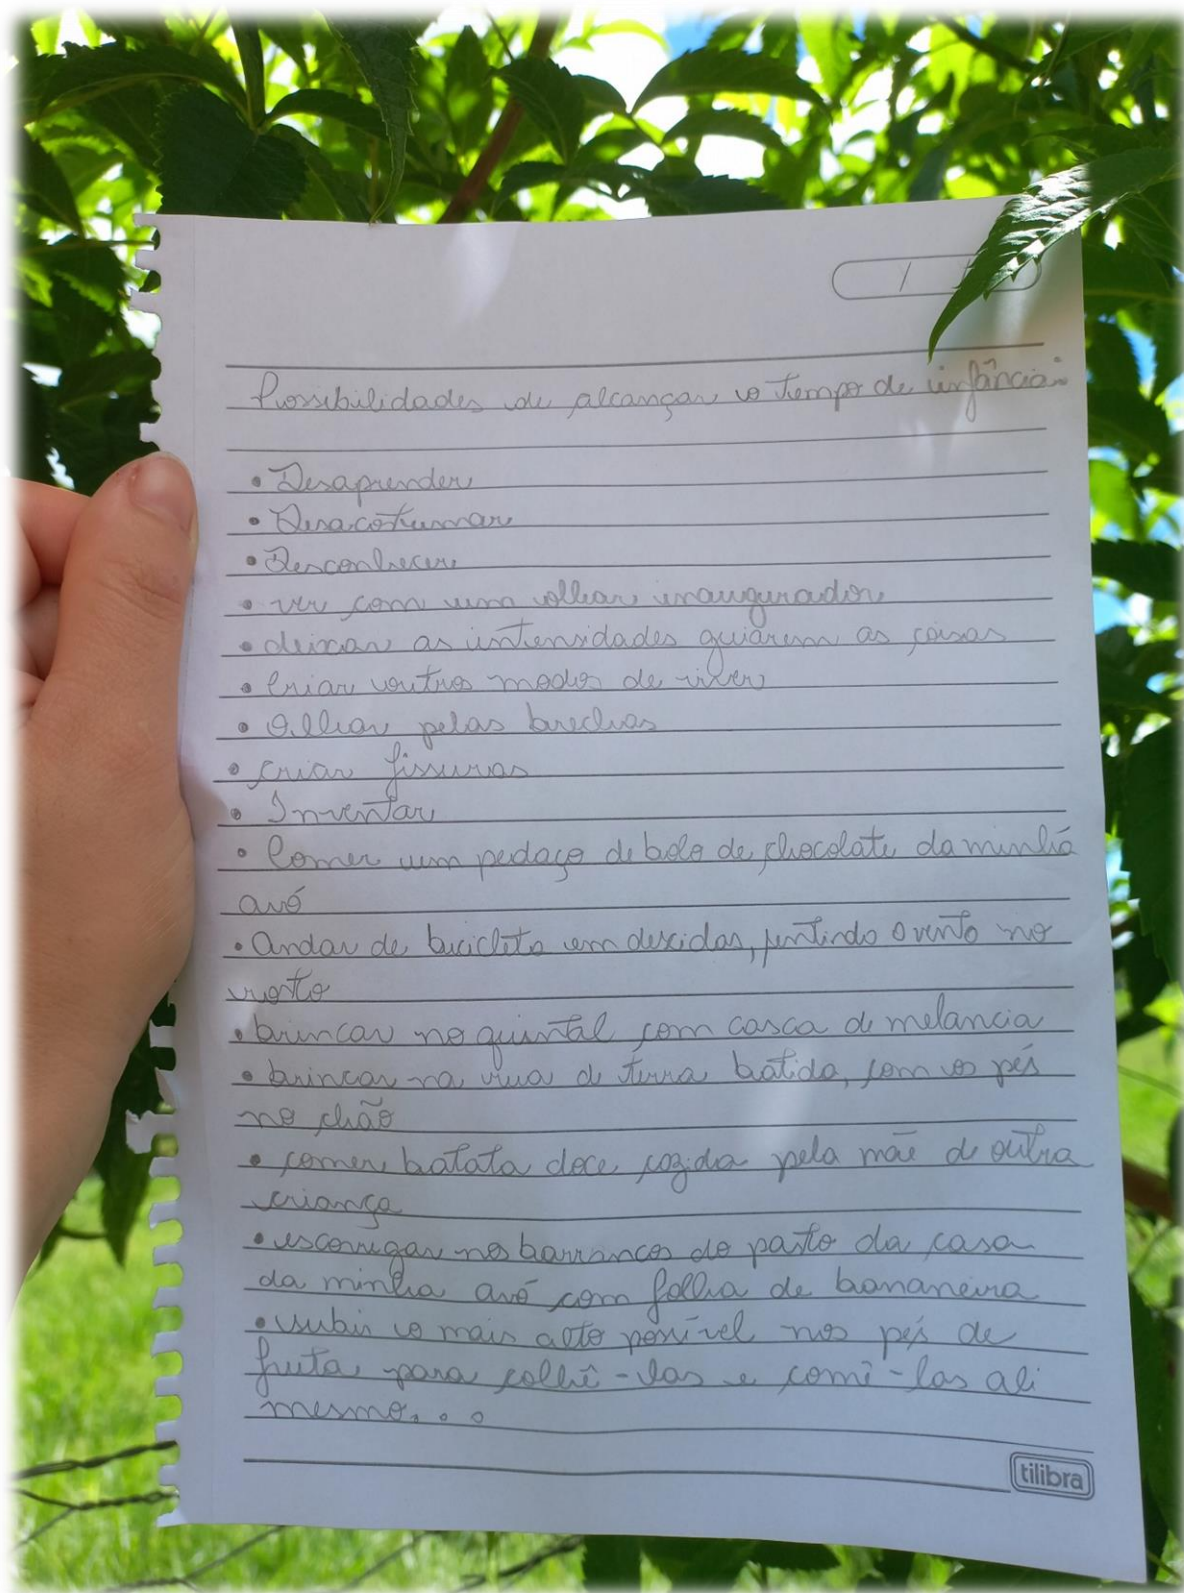 Possibilidades de alcançar o tempo de infância:
• Desaprender
• Desacotumar
• Desconhecer
• ver com um olhar inaugurador
• deixar as intensidades guiarem as coisas
• Criar outros modos de viver
• Olhar pelas brechas
• criar fissuras
• Inventar
• Comer um pedaço de bolo de chocolate da minhá
avó
• andar de bicicleta em descidas, sentindo o vento no
rosto
• brincar no quintal com casca de melancia
• brincar na rua de terra batida, com os pés
no chão
• comer batata doce cozida pela mãe de outra
criança
• escorregar nos barrancos do pasto da casa
da minha avó com folha de bananeira
• subir o mais alto possível nos pés de
fruta para colhê-las e comê-las ali
mesmo...
tilibra